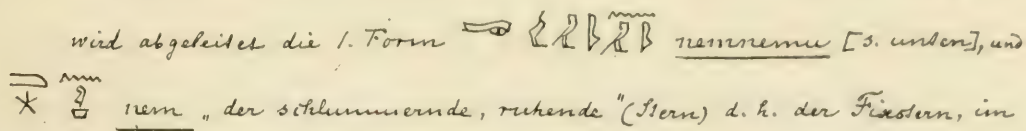 wird abgeleitet die 1. Form nemnemu [s. unten], und
nem „der schlummernde, ruhende" (Stern) d. h. der Fixstern, im